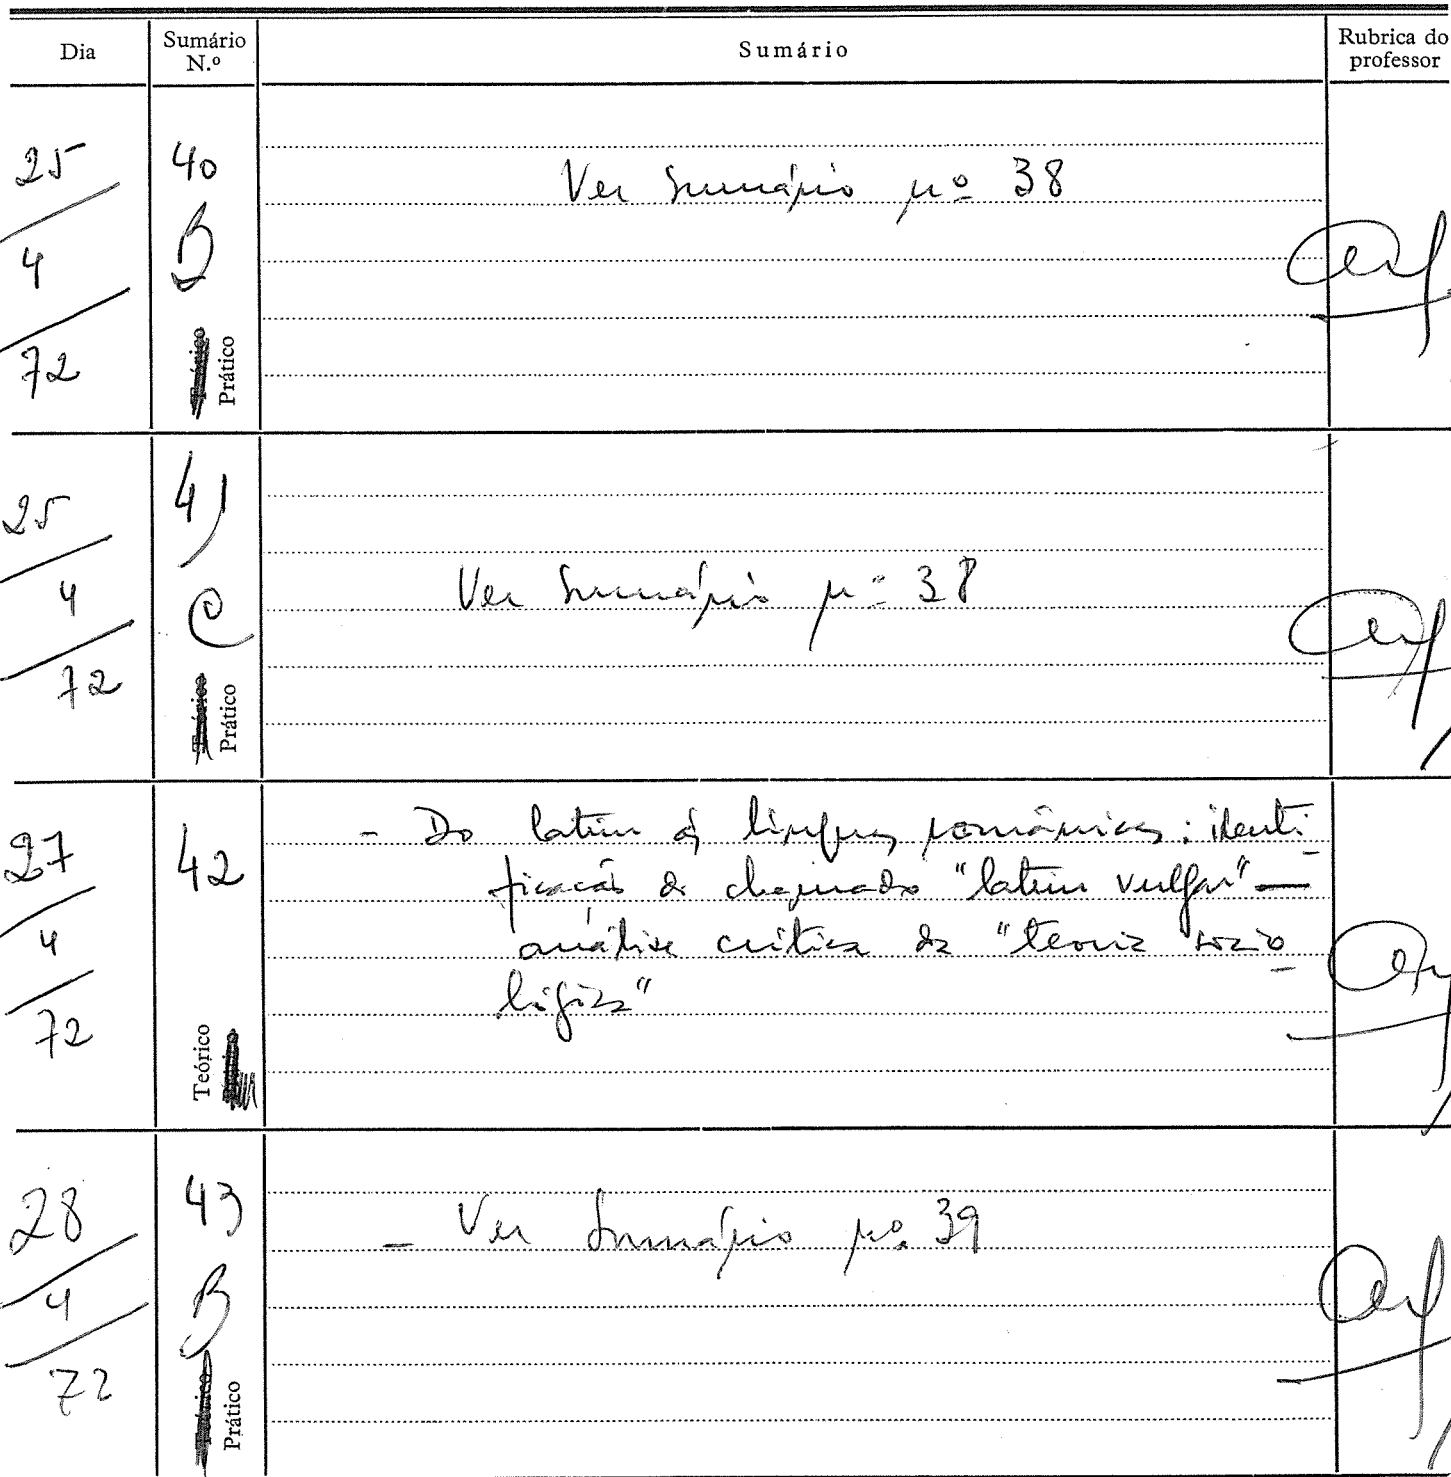 Dia
Sumário
N.º
Sumário
Rubrica do
professor
25
4
72
40
B
Teórico
Prático
Ver Sumário nº 38
25
4
72
41
C
Teórico
Prático
Ver Sumário nº 38
27
4
72
42
Teórico
- Do latim às línguas românicas: identi-
ficação do chamado "latim vulgar" —
análise crítica da "teoria socio-
lógica"
28
4
72
43
B
Teórico
Prático
- Ver Sumário nº 39